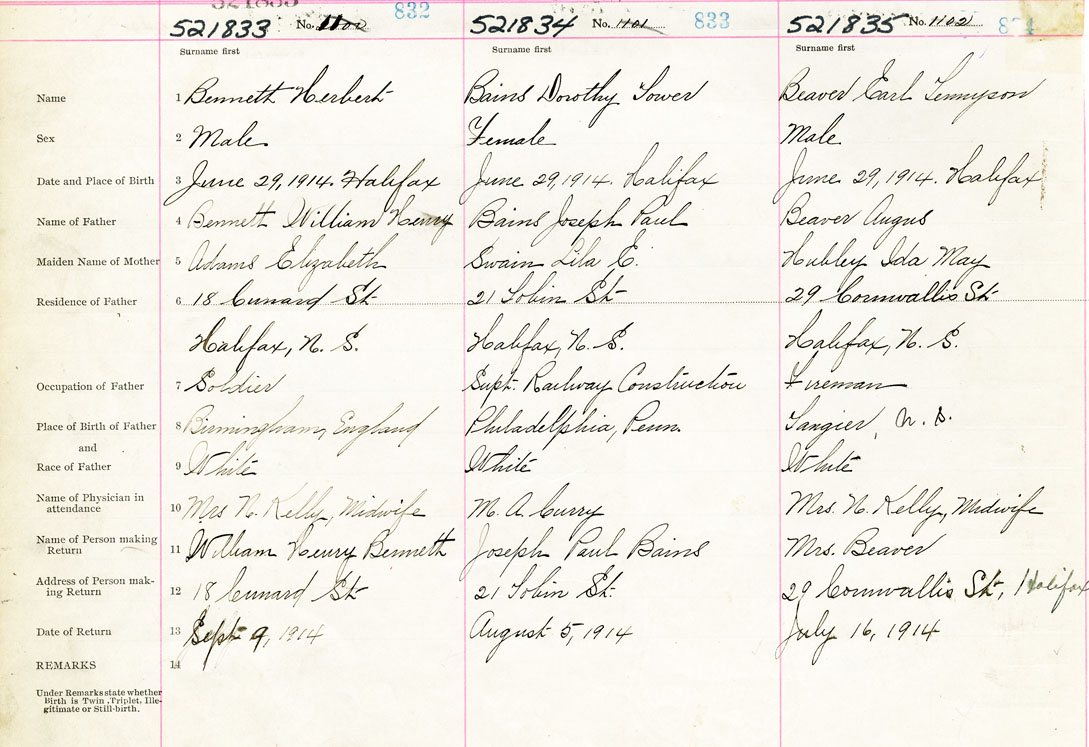 521833 No. 1100 832 521834 No. 1101 833 521835 No. 1102
Surname first Surname first Surname first
Name 1 Bennett Herbert Bains Dorothy Tower Beaver Earl Tennyson
Sex 2 Male Female Male
Date and Place of Birth 3 June 29, 1914. Halifax June 29, 1914. Halifax June 29, 1914. Halifax
Name of Father 4 Bennett William Henry Bains Joseph Paul Beaver Angus
Maiden Name of Mother 5 Adams Elizabeth Swain Lila E. Hubley Ida May
Residence of Father 6 18 Cunard St. 21 Tobin St. 29 Cornwallis St.
Halifax, N. S. Halifax, N. S. Halifax, N. S.
Occupation of Father 7 Soldier Supt. Railway Construction Fireman
Place of Birth of Father 8 Birmingham, England Philadelphia, Penn. Tangier, N. S.
and
Race of Father 9 White White White
Name of Physician in
attendance 10 Mrs N. Kelly, Midwife M. A. Curry Mrs. N. Kelly, Midwife
Name of Person making
Return 11 William Henry Bennett Joseph Paul Bains Mrs. Beaver
Address of Person mak-
ing Return 12 18 Cunard St. 21 Tobin St. 29 Cornwallis St., Halifax
Date of Return 13 Sept 9, 1914 August 5, 1914 July 16, 1914
REMARKS 14
Under Remarks state whether
Birth is Twin, Triplet, Ille-
gitimate or Still-birth.